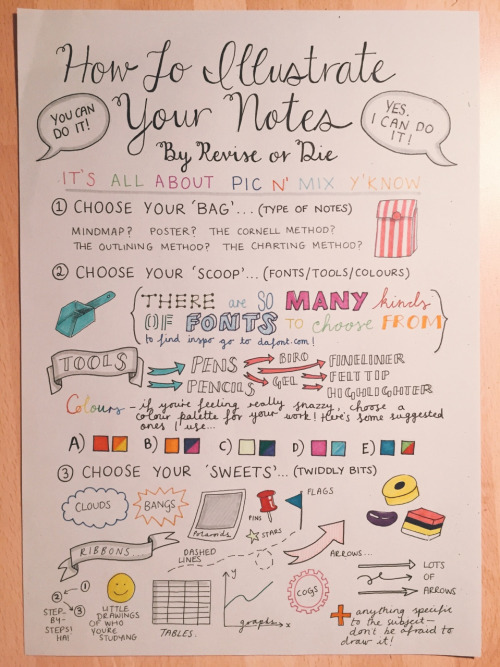 How To Illustrate
Your Notes
YOU CAN
DO IT!
YES,
I CAN DO
IT!
By Revise or Die
IT'S ALL ABOUT PIC N' MIX Y'KNOW
① CHOOSE YOUR 'BAG'... (TYPE OF NOTES)
MINDMAP? POSTER? THE CORNELL METHOD?
THE OUTLINING METHOD? THE CHARTING METHOD?
② CHOOSE YOUR 'SCOOP'... (FONTS/TOOLS/COLOURS)
THERE are SO MANY kinds
OF FONTS TO choose FROM
to find inspo go to dafont.com!
TOOLS
PENS
PENCILS
BIRO
GEL
FINELINER
FELT TIP
HIGHLIGHTER
Colours - if you're feeling really snazzy, choose a
colour palette for your work! Here's some suggested
ones I use...
A) B) C) D) E)
③ CHOOSE YOUR 'SWEETS'... (TWIDDLY BITS)
CLOUDS
BANGS
Polaroids
PINS
FLAGS
STARS
RIBBONS....
DASHED
LINES
ARROWS...
① ② ③
STEP-
BY-
STEPS!
HA!
LITTLE
DRAWINGS
OF WHO
YOU'RE
STUDYING
TABLES.
y
graphs x
COGS
LOTS
OF
ARROWS
+ anything specific
to the subject—
don't be afraid to
draw it!